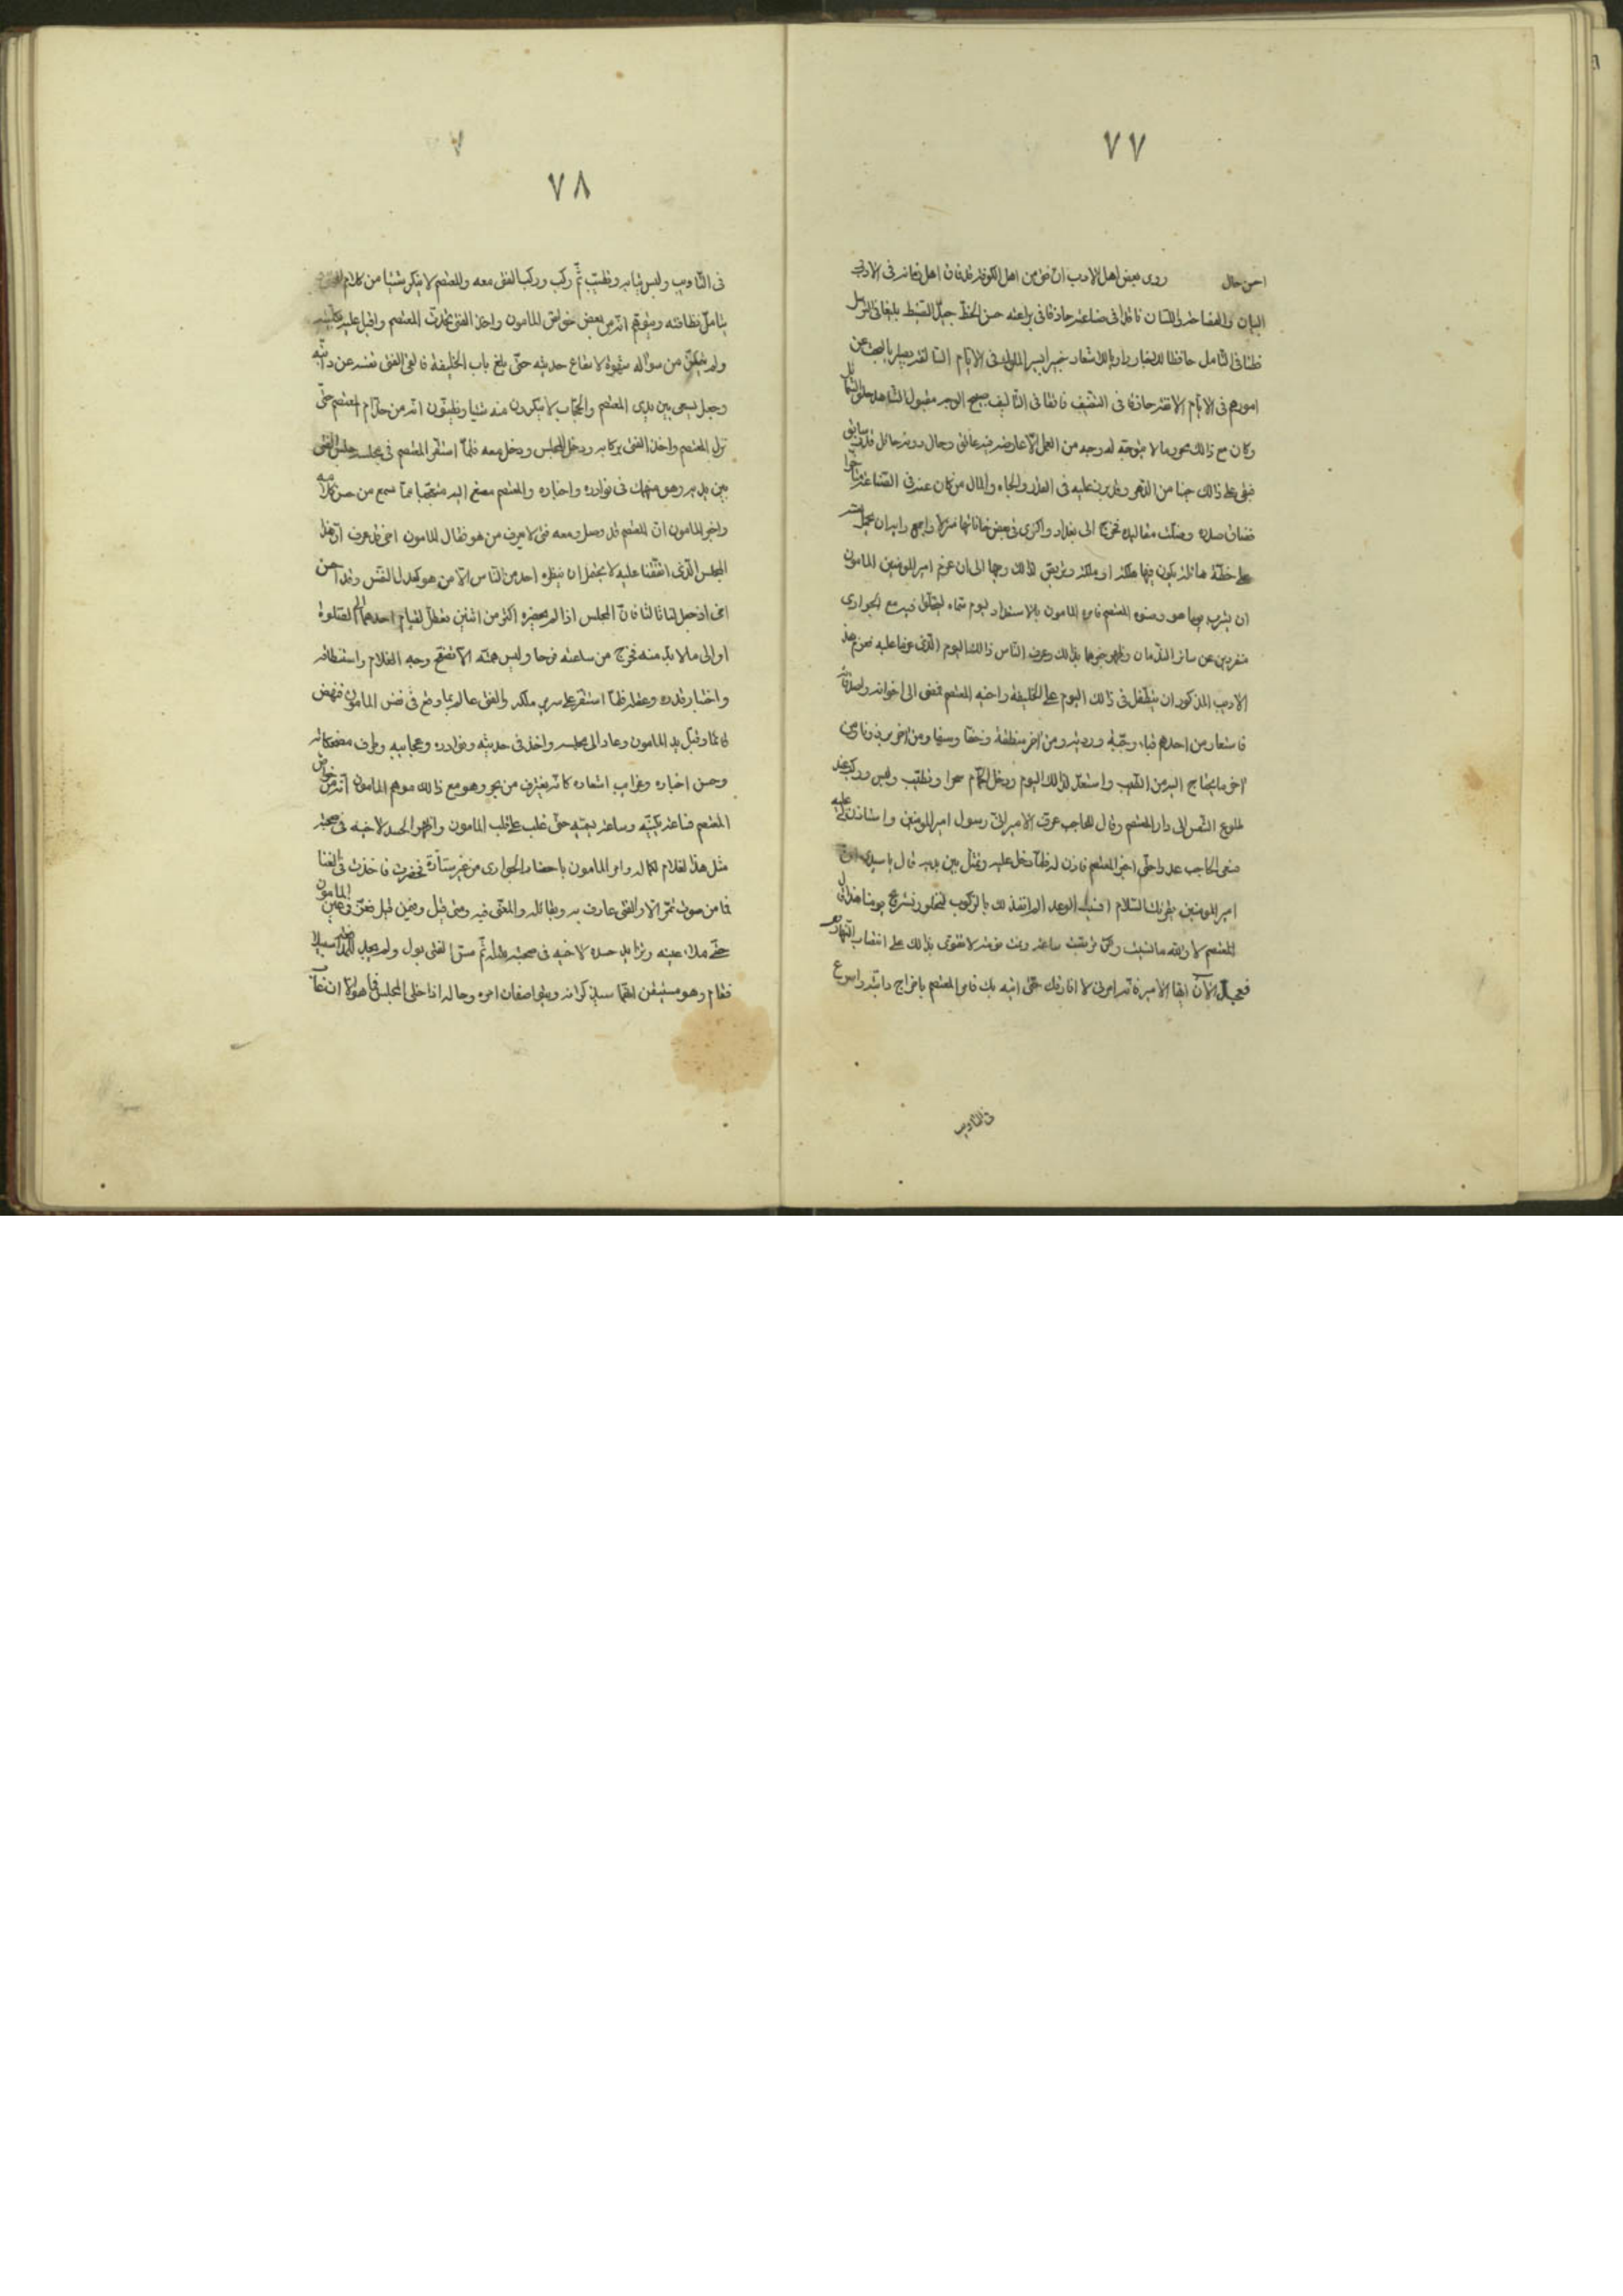 ٧٧
احسن حال روى بعض اهل الادب ان فتى من اهل الكوفة قد فاق اهل زمانه فى الادب
البيان والفصاحة واللسان فاضلا فى صناعته حاذقا فى براعته حسن الخط جيد الضبط بليغا فى الترسل
فطنا فى التامل حافظا للاخبار راويا للاشعار خبيرا بسير الملوك فى الايام السالفة بصيرا بالبحث عن
امورهم فى الايام الانفة حاذقا فى التصنيف فائقا فى التاليف صبيح الوجه مقبول المشاهدة حلو الشمائل
وكان مع ذلك محروما لا يتوجه له وجه من العمل الا عارضه فيه عائق وحال دونه حائل قدر سابق
فبقى على ذلك حينا من الدهر وقد برز عليه فى القدر والجاه والمال من كان عنه فى الصناعة متاخرا
فضاق صدره وضلت مقاليده فخرج الى بغداد واكترى فى بعض خاناتها منزلا واجمع رايه ان يحمل نفسه
على خطة هائلة يكون فيها هلكه او ملكه وتربص لذلك وجها الى ان عزم امير المؤمنين المامون
ان يشرب يوما هو وصنوه المعتصم فامره المامون بالاستعداد ليوم سماه ليختلى فيه مع الجوارى
منفردين عن سائر الندمان وظهر خبرهما بذلك وعرف الناس ذلك اليوم الذى عزما عليه فعزم هذا
الاديب المذكور ان يتطفل فى ذلك اليوم على الخليفة واخيه المعتصم فمضى الى اخوانه واصدقائه
فاستعار من احدهم قباء وجبة وردية ومن اخر منطقة وخفا وسيفا ومن اخر برذونا ومن
اخر ما يحتاج اليه من الطيب واستعد لذلك اليوم ودخل الحمام سحرا وتطيب ولبس وركب عند
طلوع الشمس الى دار المعتصم وقال للحاجب عرف الامير انى رسول امير المؤمنين واستاذن لى عليه
فمضى الحاجب عدوا حتى اخبر المعتصم فاذن له فلما دخل عليه وتمثل بين يديه قال يا سيدى ان
امير المؤمنين يقرئك السلام انسيت الوعد الم انفذ لك بالركوب لنخلو ونستريح يومنا هذا قال
المعتصم لا والله ما نسيت ولكن تربصت ساعة ونمت نومة لاتقوى بذلك على انتصاب النهار معه
فعجل الان ايها الامير فانه امرنى لا افارقك حتى اتيه بك فامر المعتصم باخراج دابته واسرع
فى التاديب
٧٨
فى التاديب ولبس ثيابه وتطيب ثم ركب وركب الفتى معه والمعتصم لا ينكر شيئا من كلام الفتى
يتامل نظافته ويتوهم انه من بعض خواص المامون واخذ الفتى يحادث المعتصم واقبل عليه بكليته
ولم يتمكن من سواله شهوة لاستماع حديثه حتى بلغ باب الخليفة فالقى الفتى نفسه عن دابته
وجعل يسعى بين يدى المعتصم والحجاب لا ينكرون منه شيئا ويظنون انه من خدام المعتصم حتى
نزل المعتصم واخذ الفتى بركابه ودخل المجلس ودخل معه فلما استقر المعتصم فى مجلسه جلس الفتى
بين يديه وهو منهمك فى نوادره واخباره والمعتصم مصغ اليه متعجبا مما سمع من حسن كلامه
واخبر المامون ان المعتصم قد وصل ومعه فتى لا يعرف من هو فقال المامون اخى قد عرف ان هذا
المجلس الذى اتفقنا عليه لا يحتمل ان ينظره احد من الناس الا من هو كعديل النفس وقد احسن
اخى اذ جعل لنا ثالثا فان المجلس اذا لم يحضره اكثر من اثنين تعطل لقيام احدهما الى الصلوة
او الى ما لا بد منه فخرج من ساعته فرحا وليس همته الا تصفح وجه الغلام واستنطاقه
واختبار قدره وعقله فلما استقر على سرير ملكه والفتى عالم بما وقع فى نفس المامون فنهض
قائما وقبل يد المامون وعاد الى مجلسه واخذ فى حديثه ونوادره وعجايبه وظرف مضحكاته
وحسن اخباره وغرايب اشعاره كانه يغترف من بحر وهو مع ذلك موهم المامون انه من خواص
المعتصم فساعة يكنيه وساعة يهنيه حتى غلب على قلب المامون واظهر الحسد لاخيه فى صحبة
مثل هذا الغلام لكماله وامر المامون باحضار الجوارى من غير ستارة فحضرت فاخذت فى الغنا
فما من صوت تمر الا والفتى عارف به وبقائله والمغنى فيه ومتى قيل وفيمن قيل فعز فى عين المامون
حتى ملا عينه وتزايد حسده لاخيه فى صحبة مثله ثم مس الفتى بول ولم يجد للصبر سبيلا
فقام وهو مستيقن انهما سيذاكرانه ويتواصفان امره وحاله اذا خلى المجلس فما هو الا ان غاب